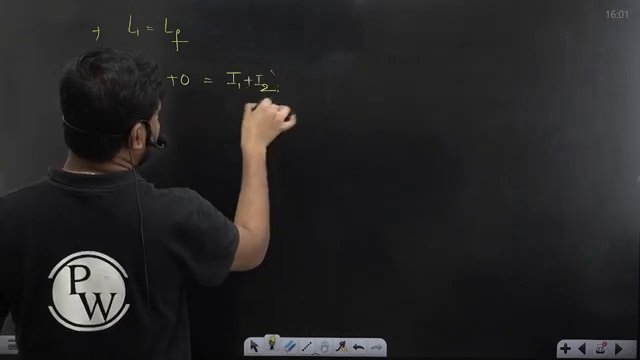 16:01
+ L₁ = L_f
+0 = I₁ + I₂
P
W